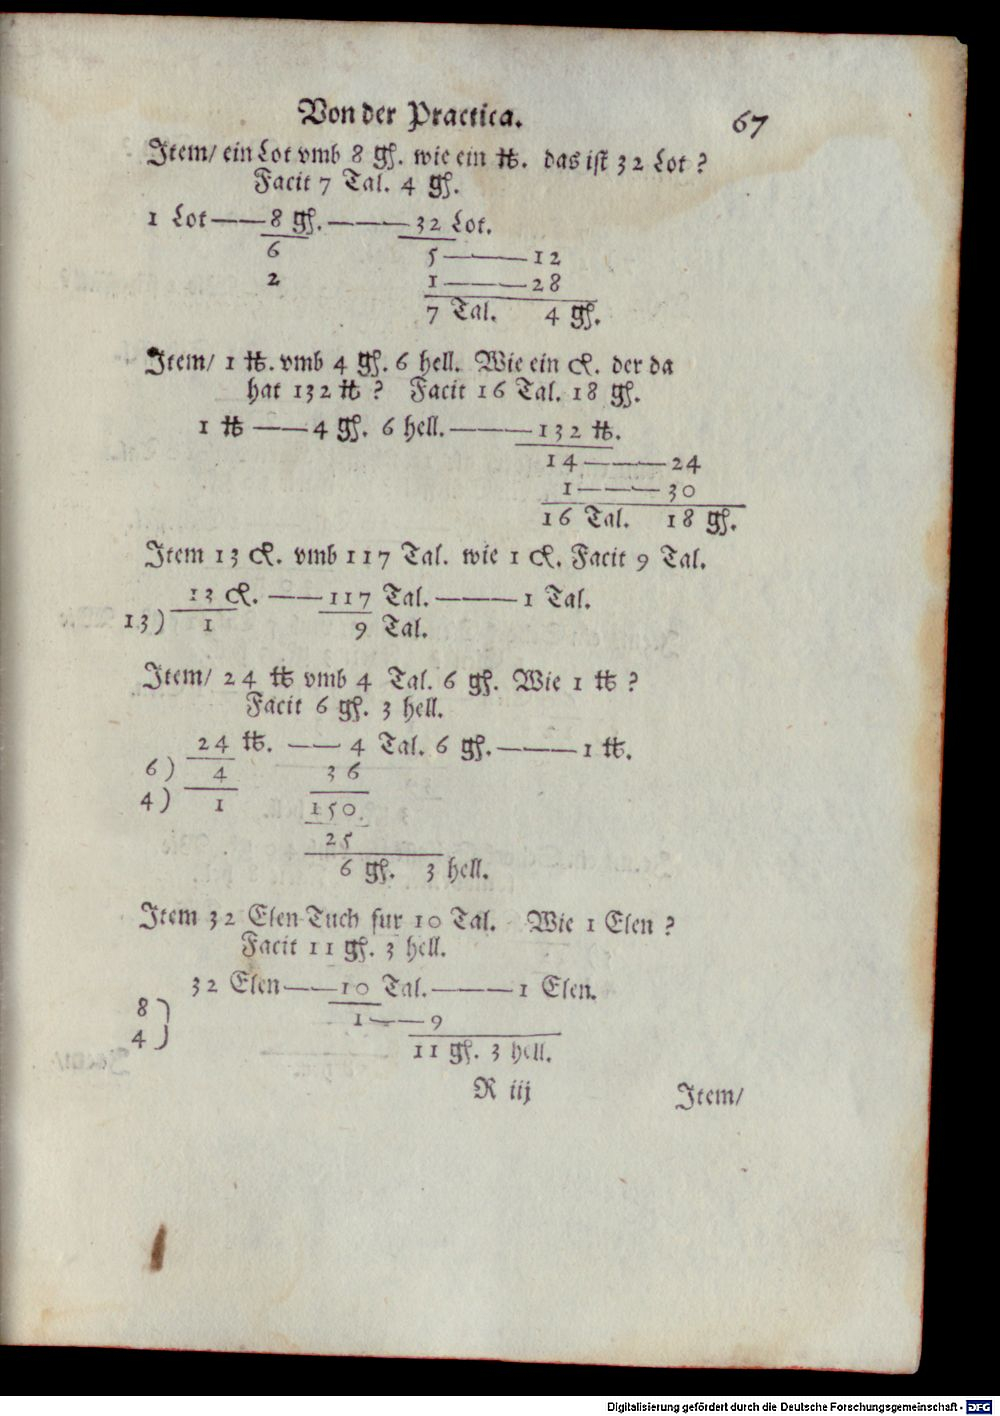 Von der Practica. 67
Item/ ein Lot vmb 8 gß. wie ein ℔. das ist 32 Lot?
Facit 7 Tal. 4 gß.
1 Lot——8 gß.———32 Lot.
6 5———12
2 1———28
7 Tal. 4 gß.
Item/ 1 ℔. vmb 4 gß. 6 hell. Wie ein C. der da
hat 132 ℔? Facit 16 Tal. 18 gß.
1 ℔——4 gß. 6 hell.———132 ℔.
14———24
1———30
16 Tal. 18 gß.
Item 13 C. vmb 117 Tal. wie 1 C. Facit 9 Tal.
13 C.——117 Tal.———1 Tal.
13) 1 9 Tal.
Item/ 24 ℔ vmb 4 Tal. 6 gß. Wie 1 ℔?
Facit 6 gß. 3 hell.
24 ℔.——4 Tal. 6 gß.———1 ℔.
6) 4 36
4) 1 150
25
6 gß. 3 hell.
Item 32 Elen Tuch fur 10 Tal. Wie 1 Elen?
Facit 11 gß. 3 hell.
32 Elen——10 Tal.———1 Elen.
8) 1——9
4) 11 gß. 3 hell.
R iij Item/
Digitalisierung gefördert durch die Deutsche Forschungsgemeinschaft - DFG